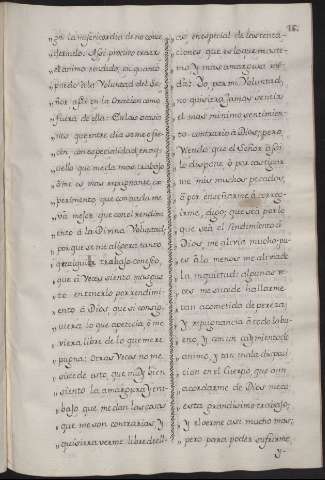 18.
„ on la misericordia de no consi
„ derarlo. Assi procuro traer
„ el animo rendido, en quanto
„ puedo à la Voluntad del Se-
„ ñor assi en la Oracion como
„ fuera de ella: En las ocasio
„ nes que entre dia se me ofre
„ cen con especialidad, en aq
„ uello que me da mas trabajo
„ ò me es mas repugnante, ex
„ perimento que con nada me
„ va mejor que con el rendimi
„ ento à la Divina Voluntad,
„ porque se me aligera tanto
„ qualquier trabajo con esto,
„ que à Veces siento mas gus
„ to en tenerlo por rendimi
„ ento à Dios que si consig-
„ uiera lo que apetecia, ò me
„ viera libre de lo que me re
„ pugna; otras Veces no me
„ sucede asi, que muy bien
„ siento la amargura y tra
„ bajo que me dan las cosas
„ que me son contrarias, y
„ quisiera verme libre de ell-
„ as en especial de las tenta-
„ ciones que es lo que mas te-
„ mo y mas amargura me
„ dà: Yo, por mi Voluntad,
„ no quisiera jamas sentir
„ el mas minimo sentimien-
„ to contrario à Dios; pero,
„ Viendo que el Señor assi
„ lo dispone, ò por castigar
„ me mis muchos pecados,
„ ò por enseñarme à correg-
„ irme, digo; que sea por lo
„ que sea el rendimiento à
„ Dios, me alivia mucho, pu-
„ es à lo menos me alivia de
„ la inquietud: algunas ve
„ ces me sucede hallarme
„ tan acometida de pereza,
„ y repugnancia à todo lo bu-
„ eno, y con un caimiento de
„ animo, y tan mala disposi
„ cion en el Cuerpo que aun
„ acordarme de Dios me cu
„ esta grandissimo trabajo,
„ y el verme asi mucho mas,
„ pero para poder sufrirme
y-